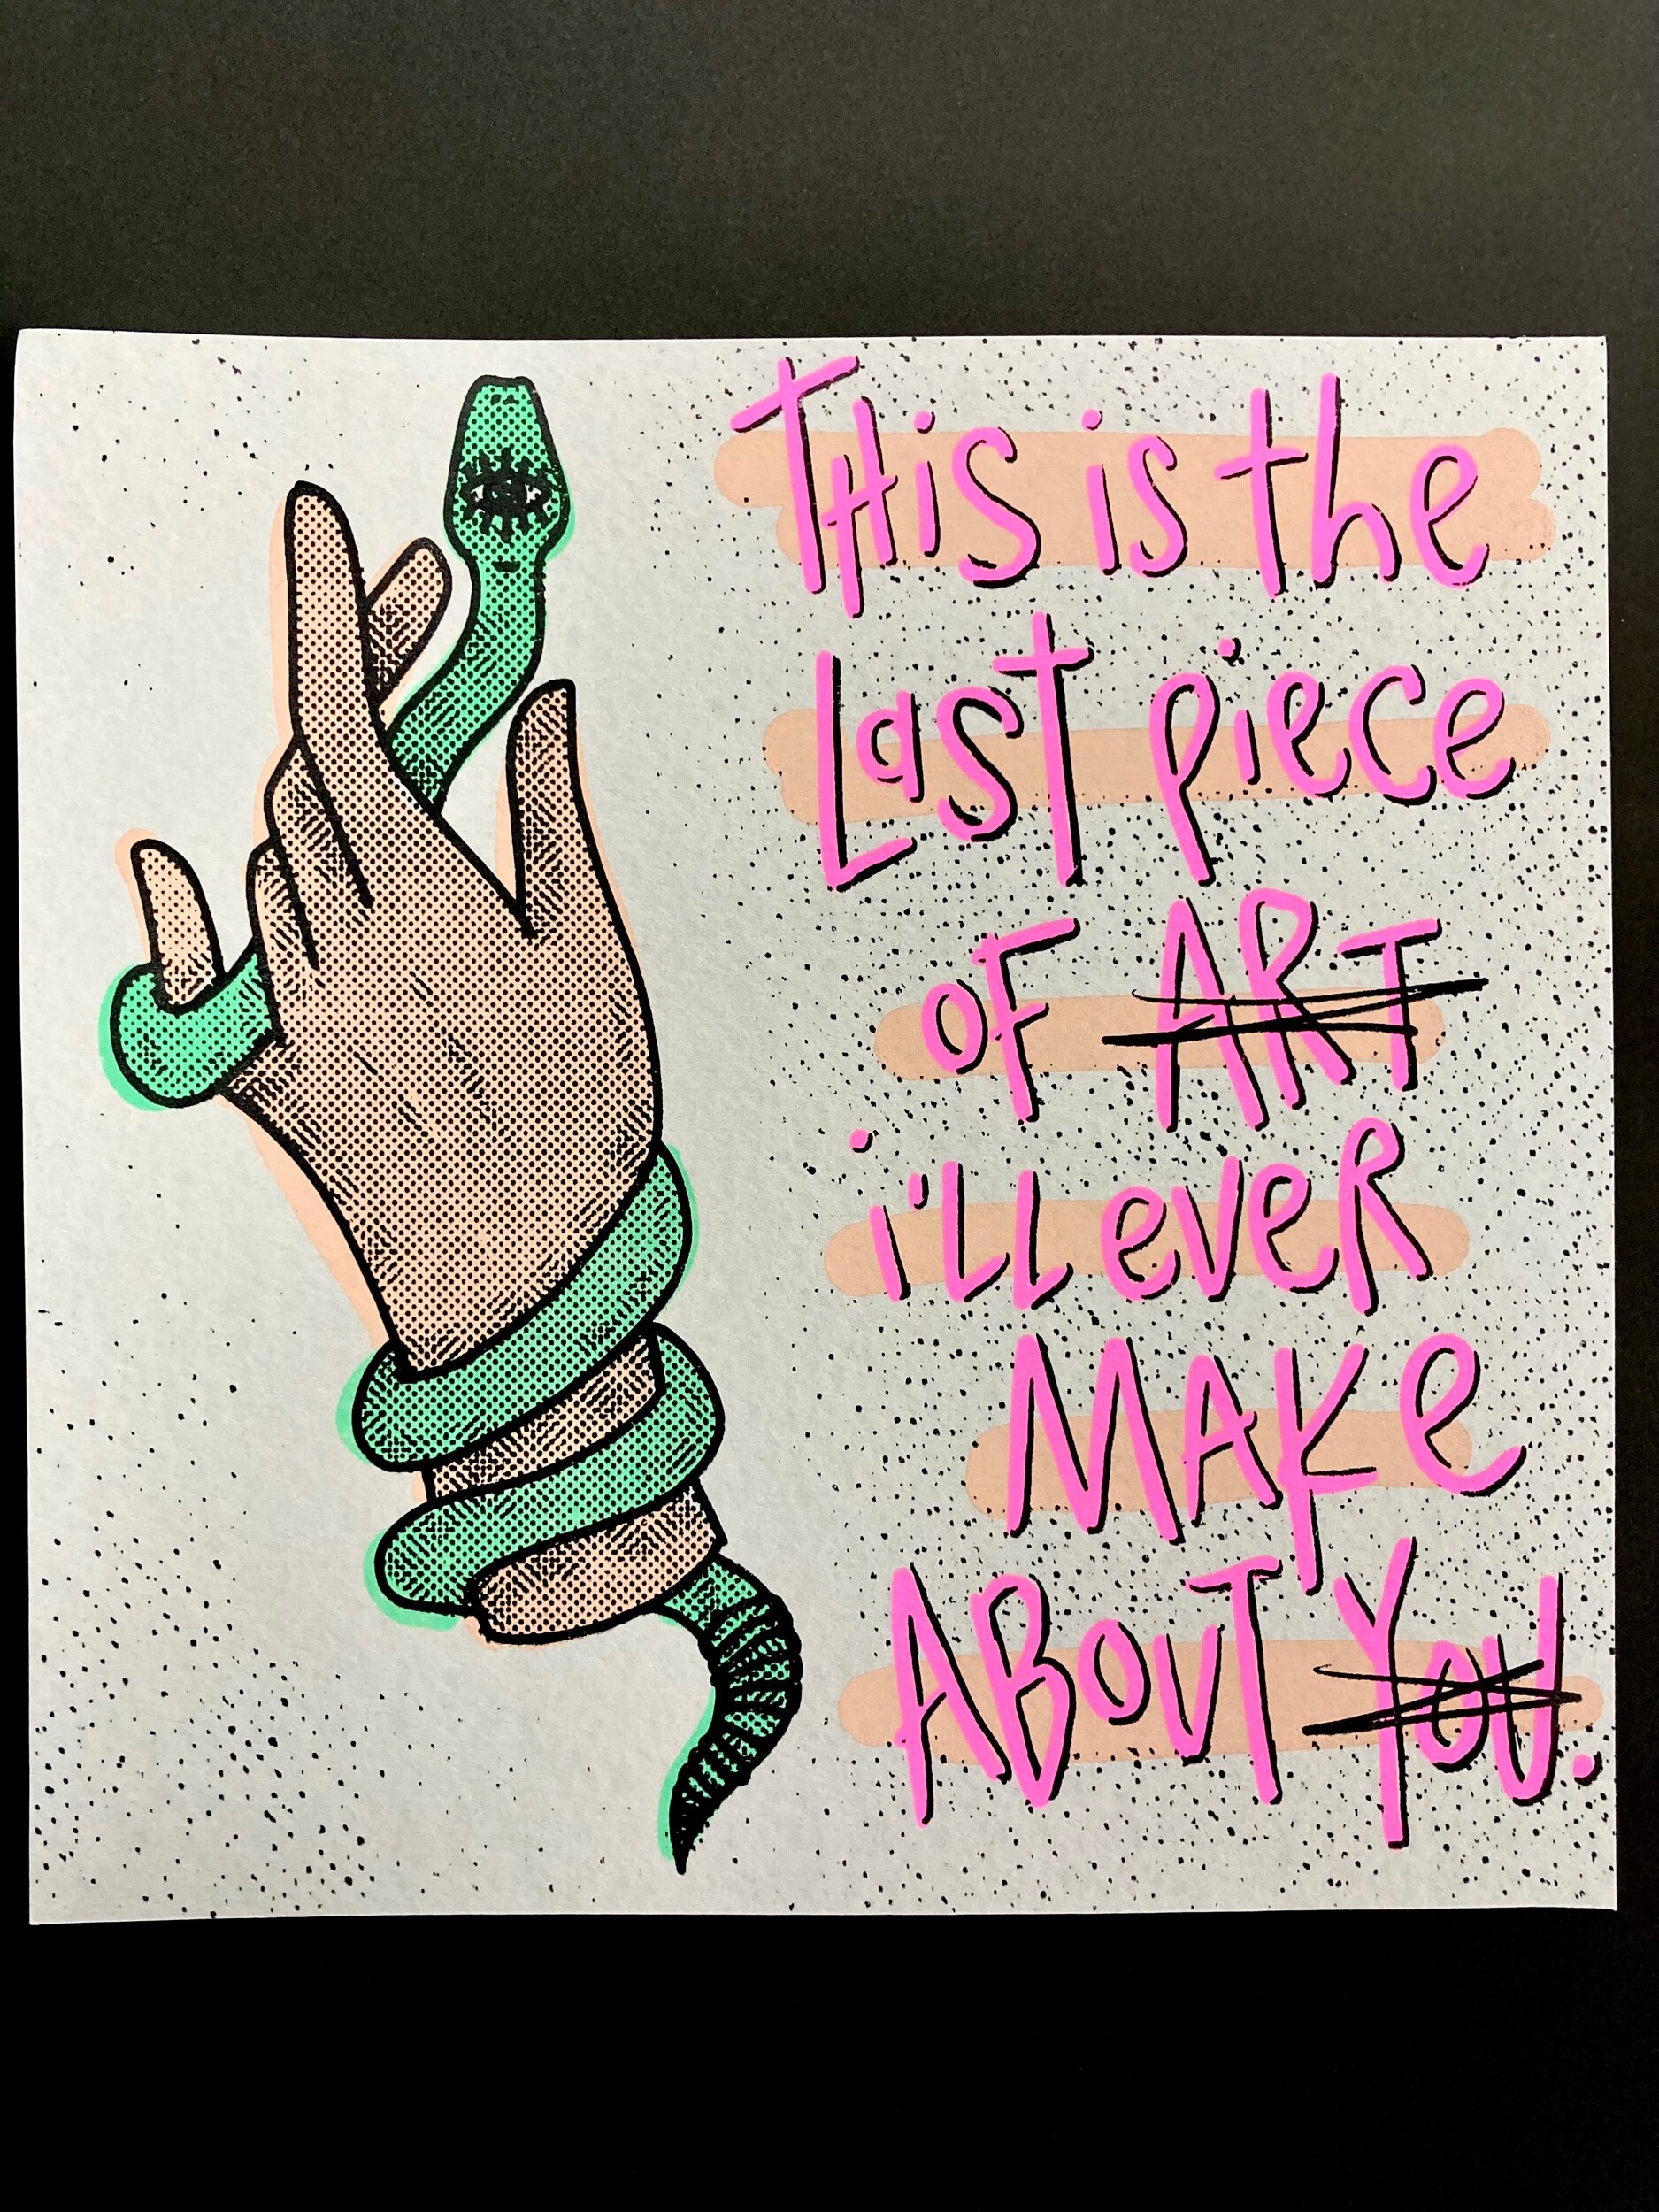 THis is the
Last piece
oF ART
i'LL eveR
MAKe
ABouT You.